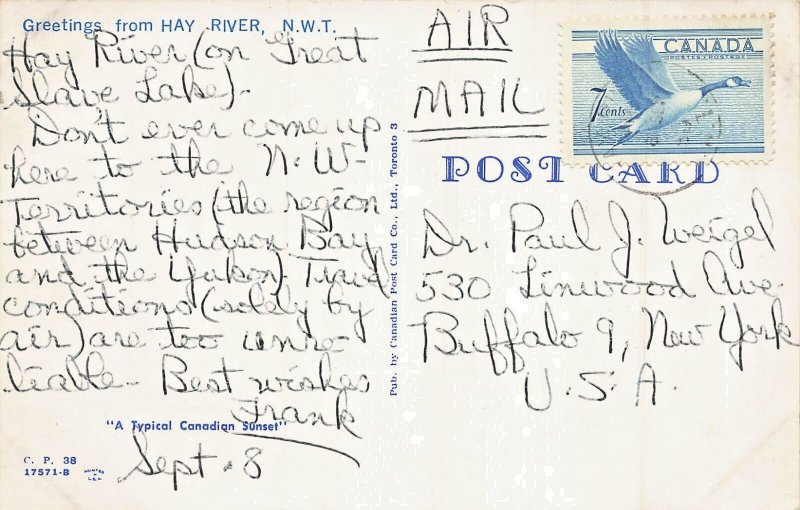 Greetings from HAY RIVER, N.W.T.
Hay River (on Great
Slave Lake).
Don't ever come up
here to the N.W.
Territories (the region
between Hudson Bay
and the Yukon). Travel
conditions (solely by
air) are too unre-
liable. Best wishes
Frank
"A Typical Canadian Sunset"
Sept. 8
C. P. 38
17571-B
PRINTED
IN
U.S.A.
Pub. by Canadian Post Card Co., Ltd., Toronto 3
AIR
MAIL
CANADA
POSTES POSTAGE
7 cents
POST CARD
Dr. Paul J. Weigel
530 Linwood Ave.
Buffalo 9, New York
U.S.A.